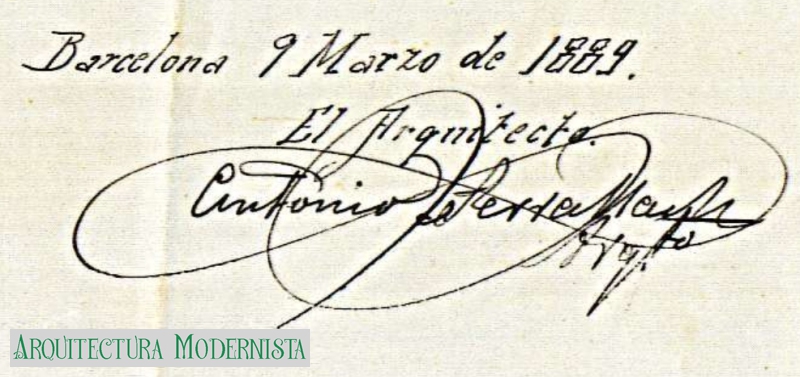 Barcelona 9 Marzo de 1889.
El Arquitecto.
Antonio Serrallach
Arq.to
ARQUITECTURA MODERNISTA